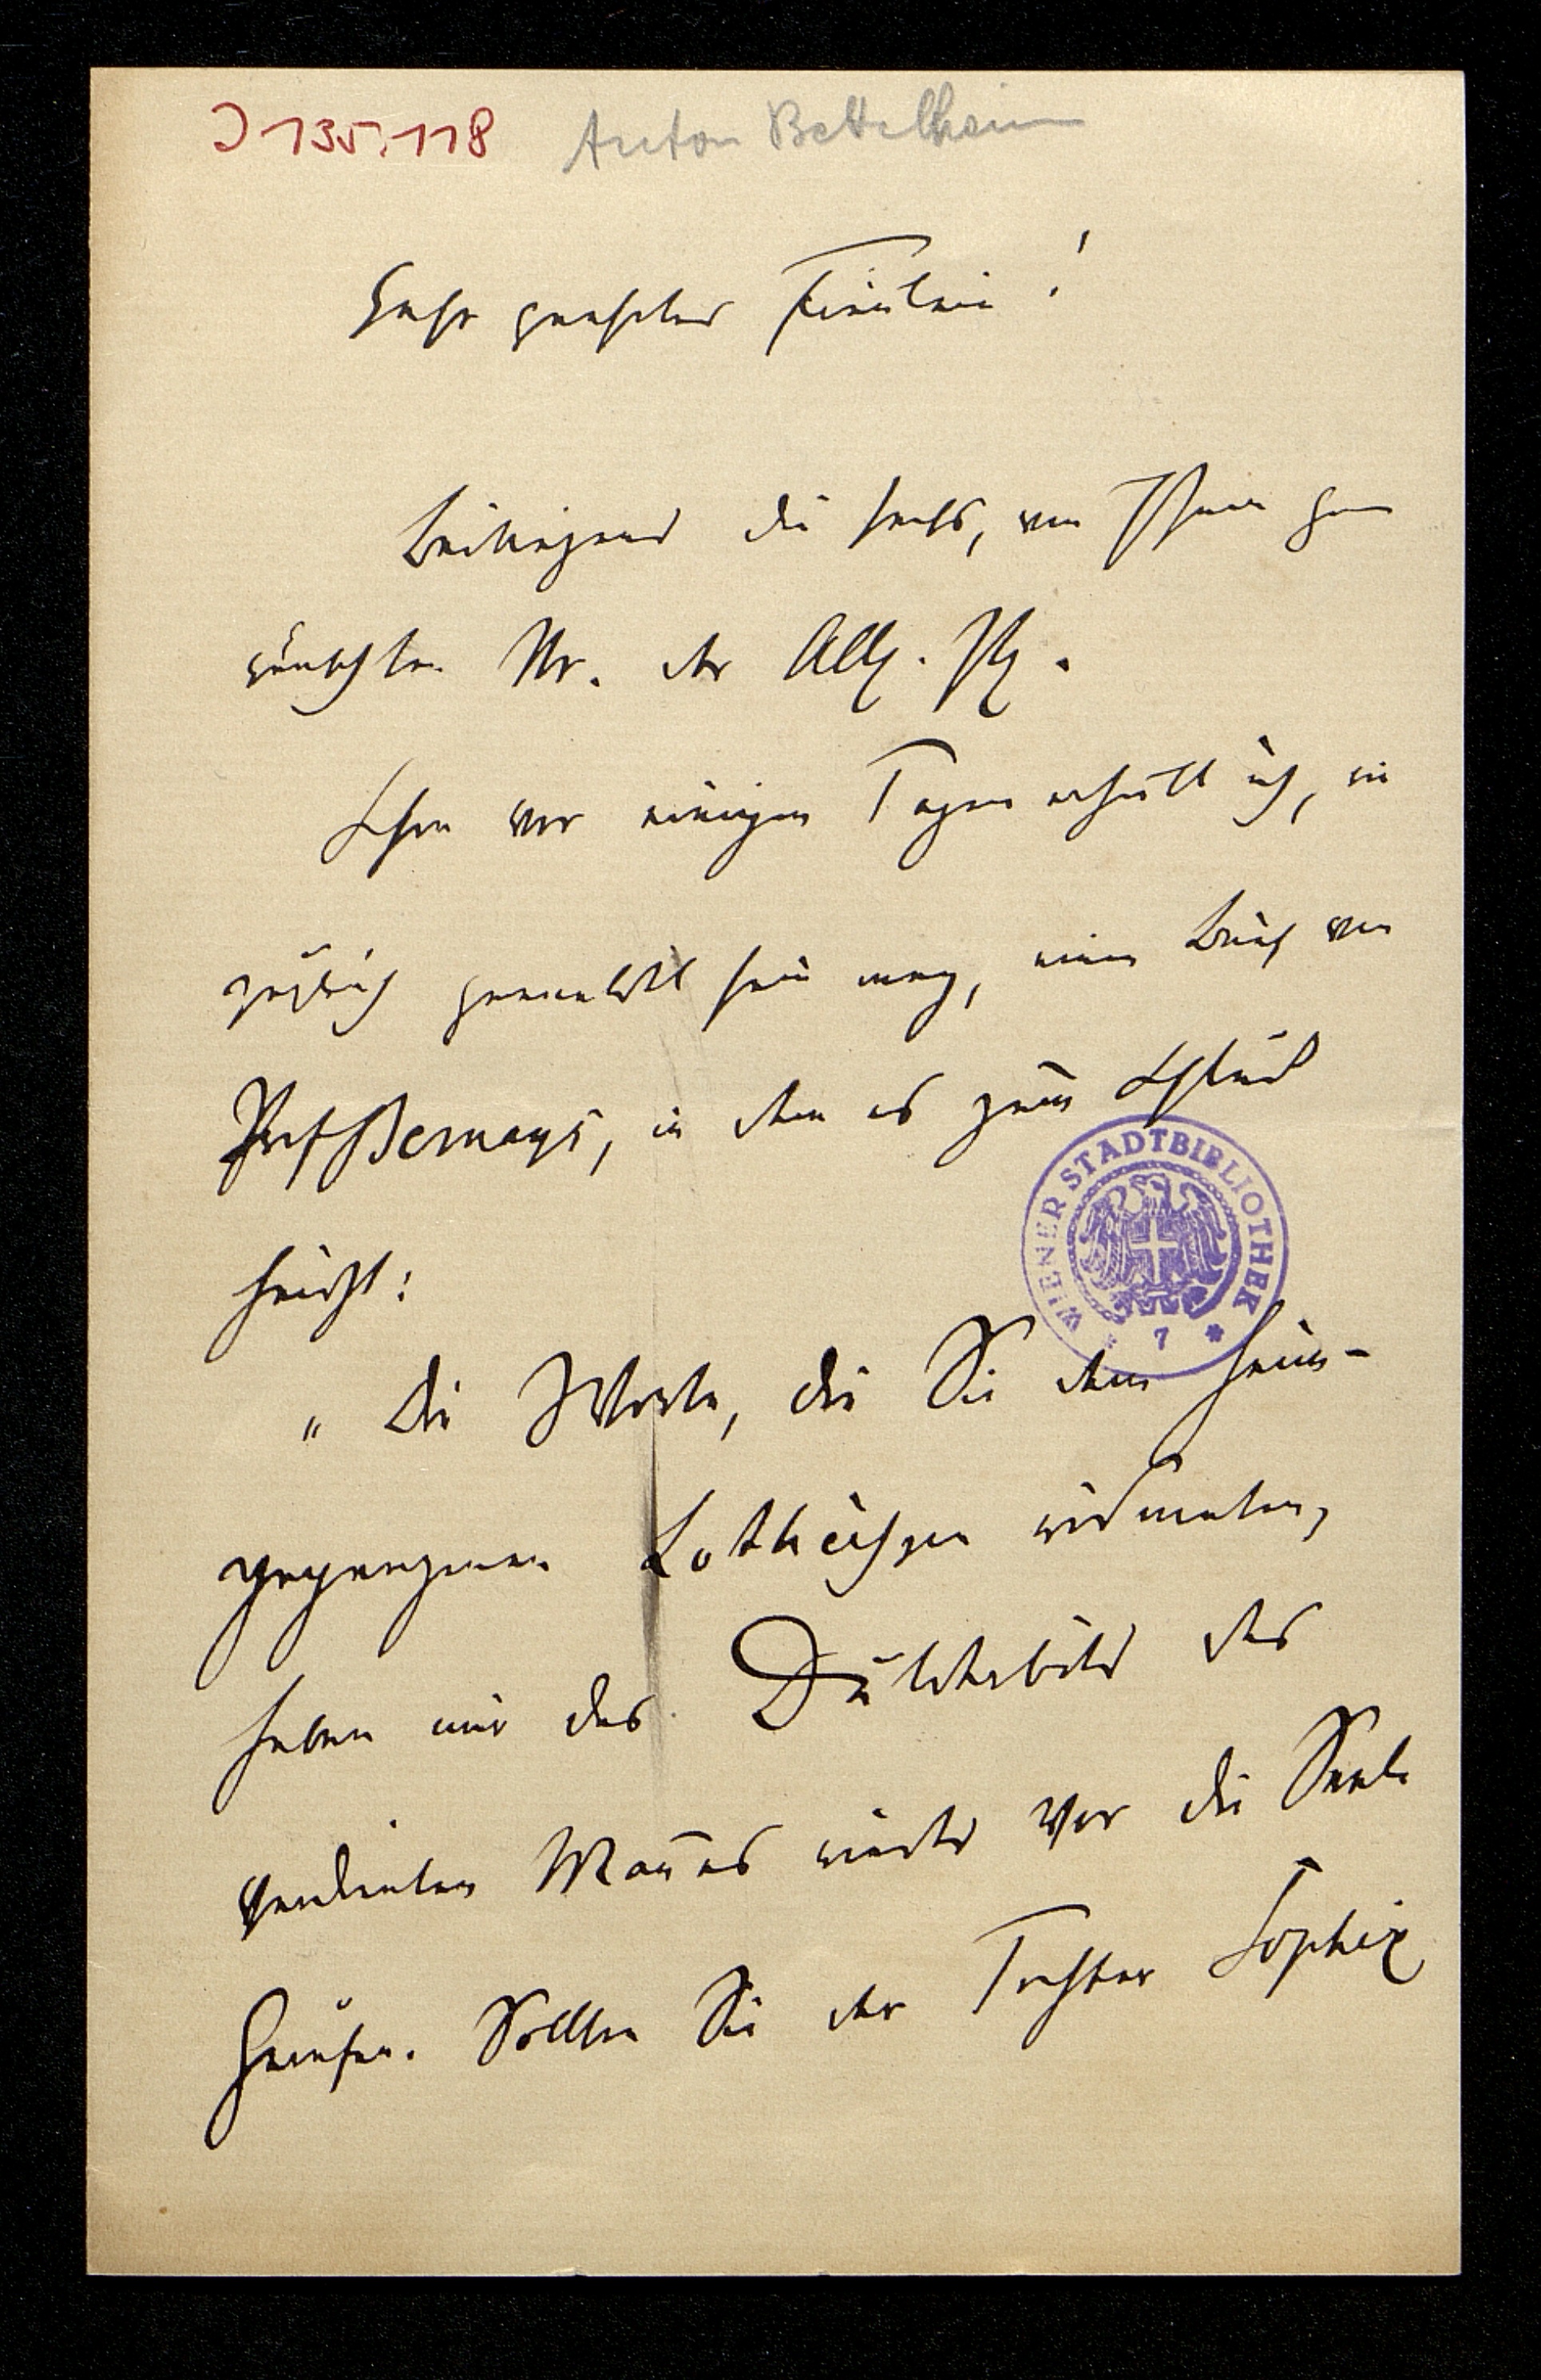 J 135.118 Anton Bettelheim
Sehr geehrtes Fräulein!
Beiliegend die sechs, von Ihnen ge
wünschten Nr. der Allg. Ztg.
Schon vor einigen Tagen erhielt ich, wie
gleich gemeldet sein mag, einen Brief von
Prof Bernays, in dem es zum Schluß
heißt:
„Die Worte, die Sie dem heim-
gegangenen Lotheißen widmeten,
haben mir das Dulderbild des
verdienten Mannes wieder vor die Seele
gerufen. Sollten Sie der Tochter Sophie
WIENER STADTBIBLIOTHEK
* 7 *